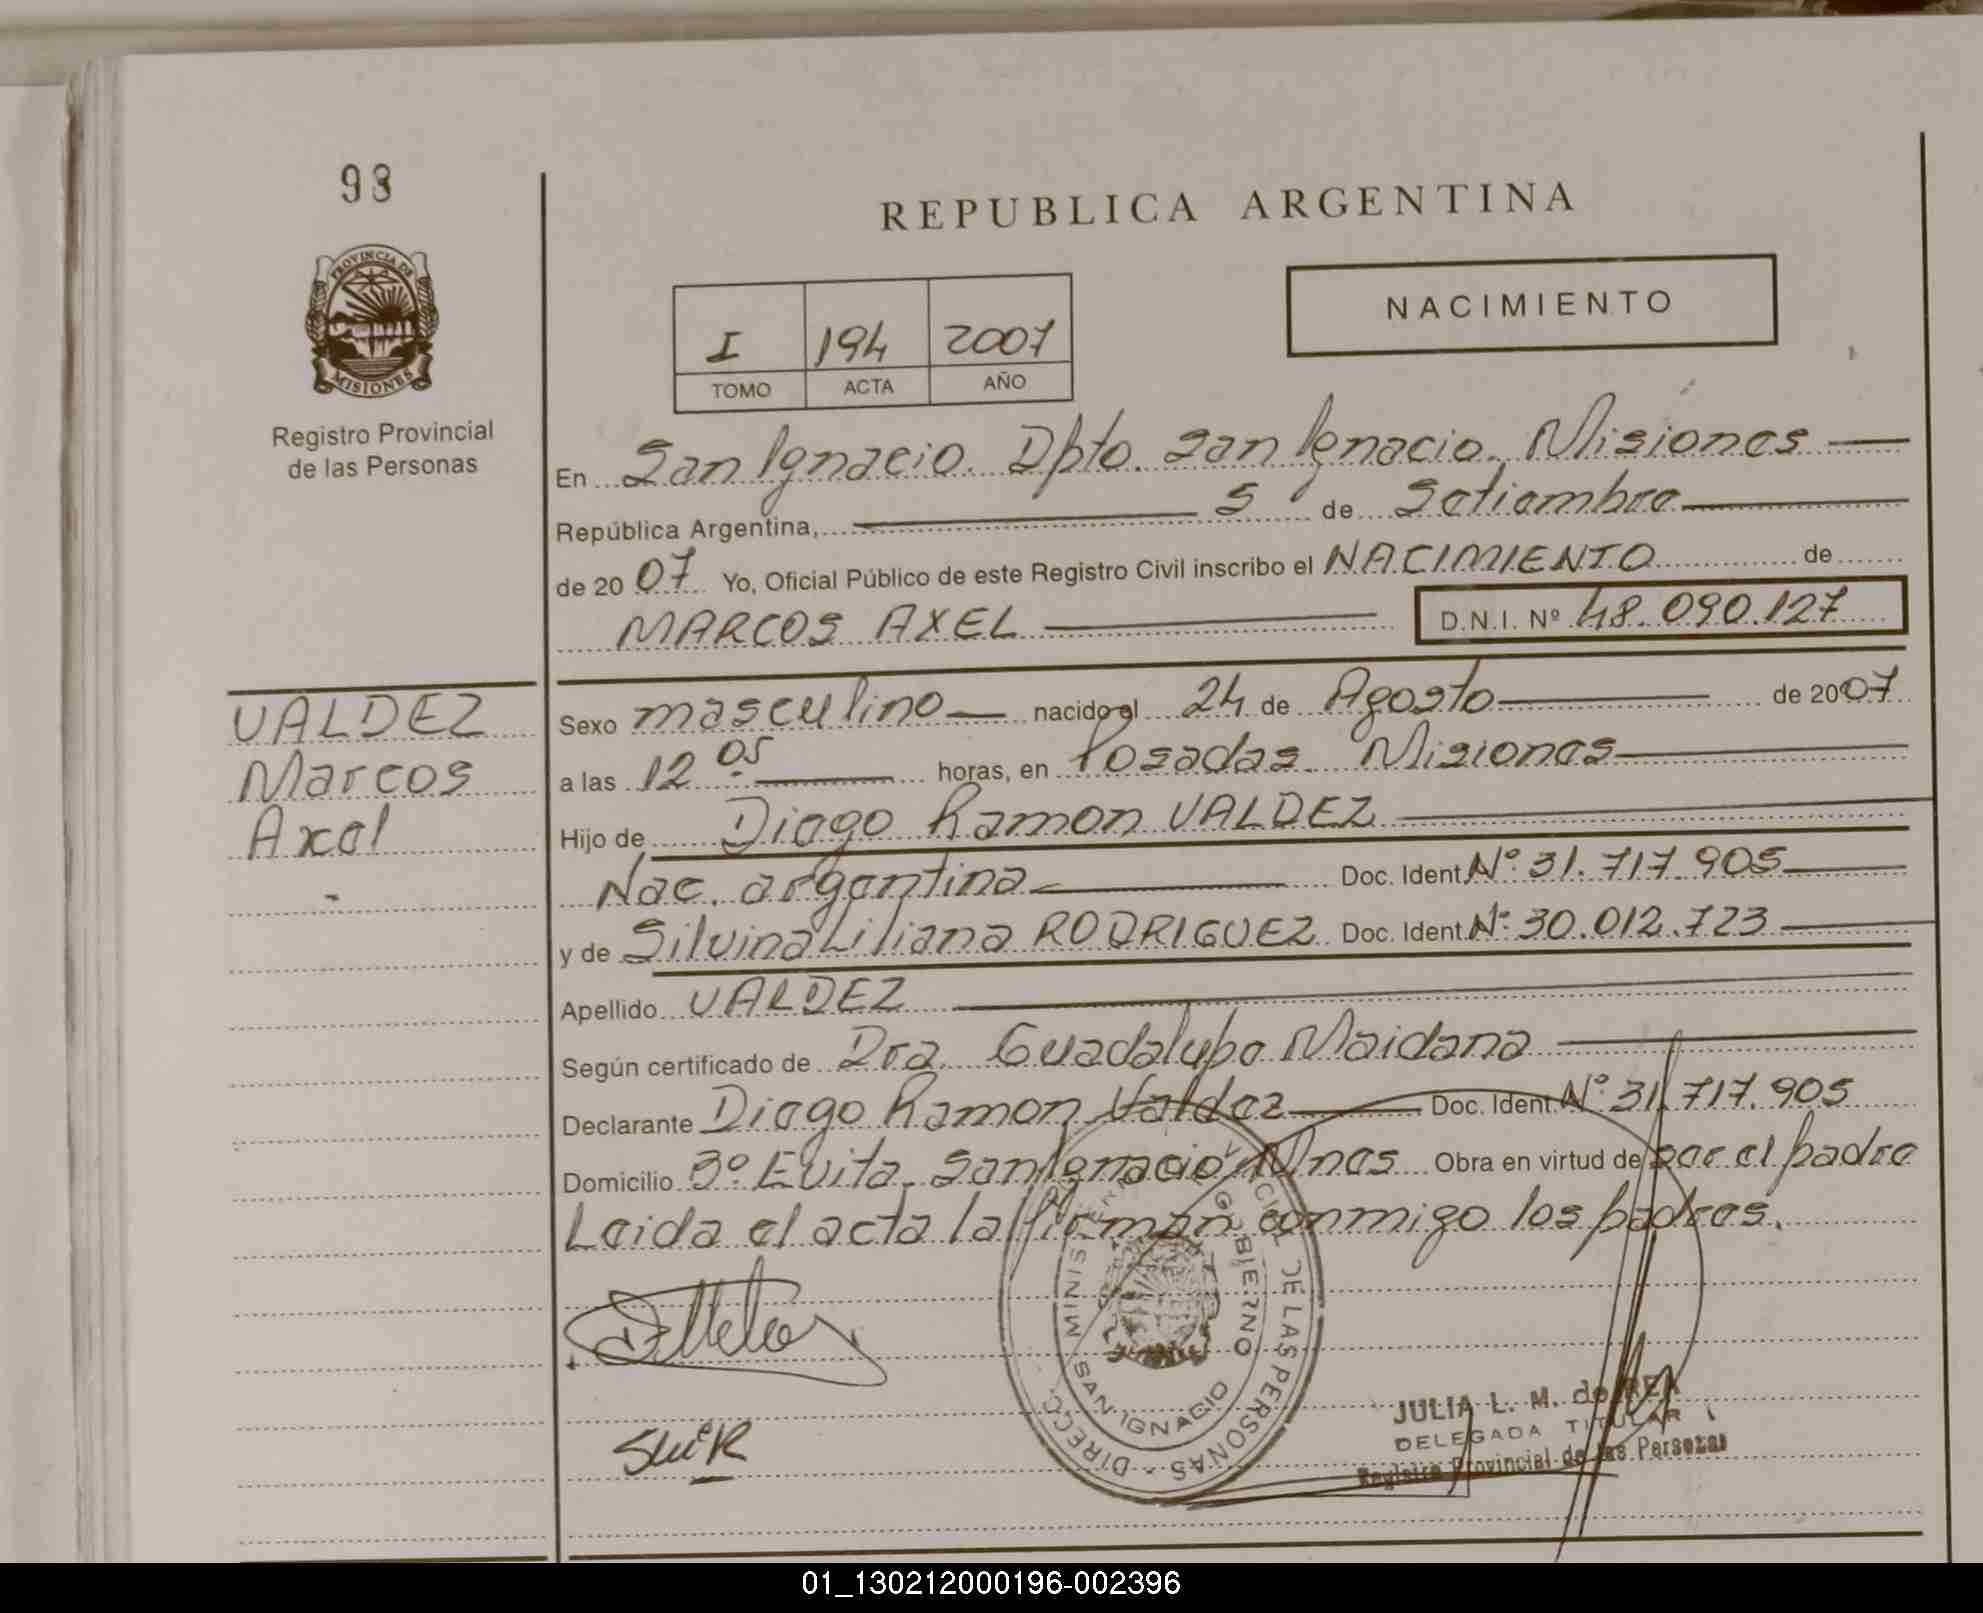 93
PROVINCIA DE
MISIONES
Registro Provincial
de las Personas
REPUBLICA ARGENTINA
NACIMIENTO
I 194 2007
TOMO ACTA AÑO
En San Ignacio. Dpto. San Ignacio. Misiones
República Argentina, 5 de Setiembre
de 2007 Yo, Oficial Público de este Registro Civil inscribo el NACIMIENTO de
MARCOS AXEL D.N.I. Nº 48.090.127
VALDEZ
Marcos
Axel
Sexo masculino nacido el 24 de Agosto de 2007
a las 12 05 horas, en Posadas. Misiones
Hijo de Diego Ramon VALDEZ
Nac. argentina Doc. Ident. Nº 31.717.905
y de Silvina Liliana RODRIGUEZ Doc. Ident. Nº 30.012.723
Apellido VALDEZ
Según certificado de Dra. Guadalupe Maidana
Declarante Diego Ramon Valdez Doc. Ident. Nº 31.717.905
Domicilio Bº Evita. San Ignacio Mnes Obra en virtud de ser el padre
Leida el acta la firman conmigo los padres.
MINISTERIO GOBIERNO
SAN IGNACIO
DE LAS PERSONAS - DIRECC
JULIA L. M. de REA
DELEGADA TITULAR
Registro Provincial de las Personas
01_130212000196-002396